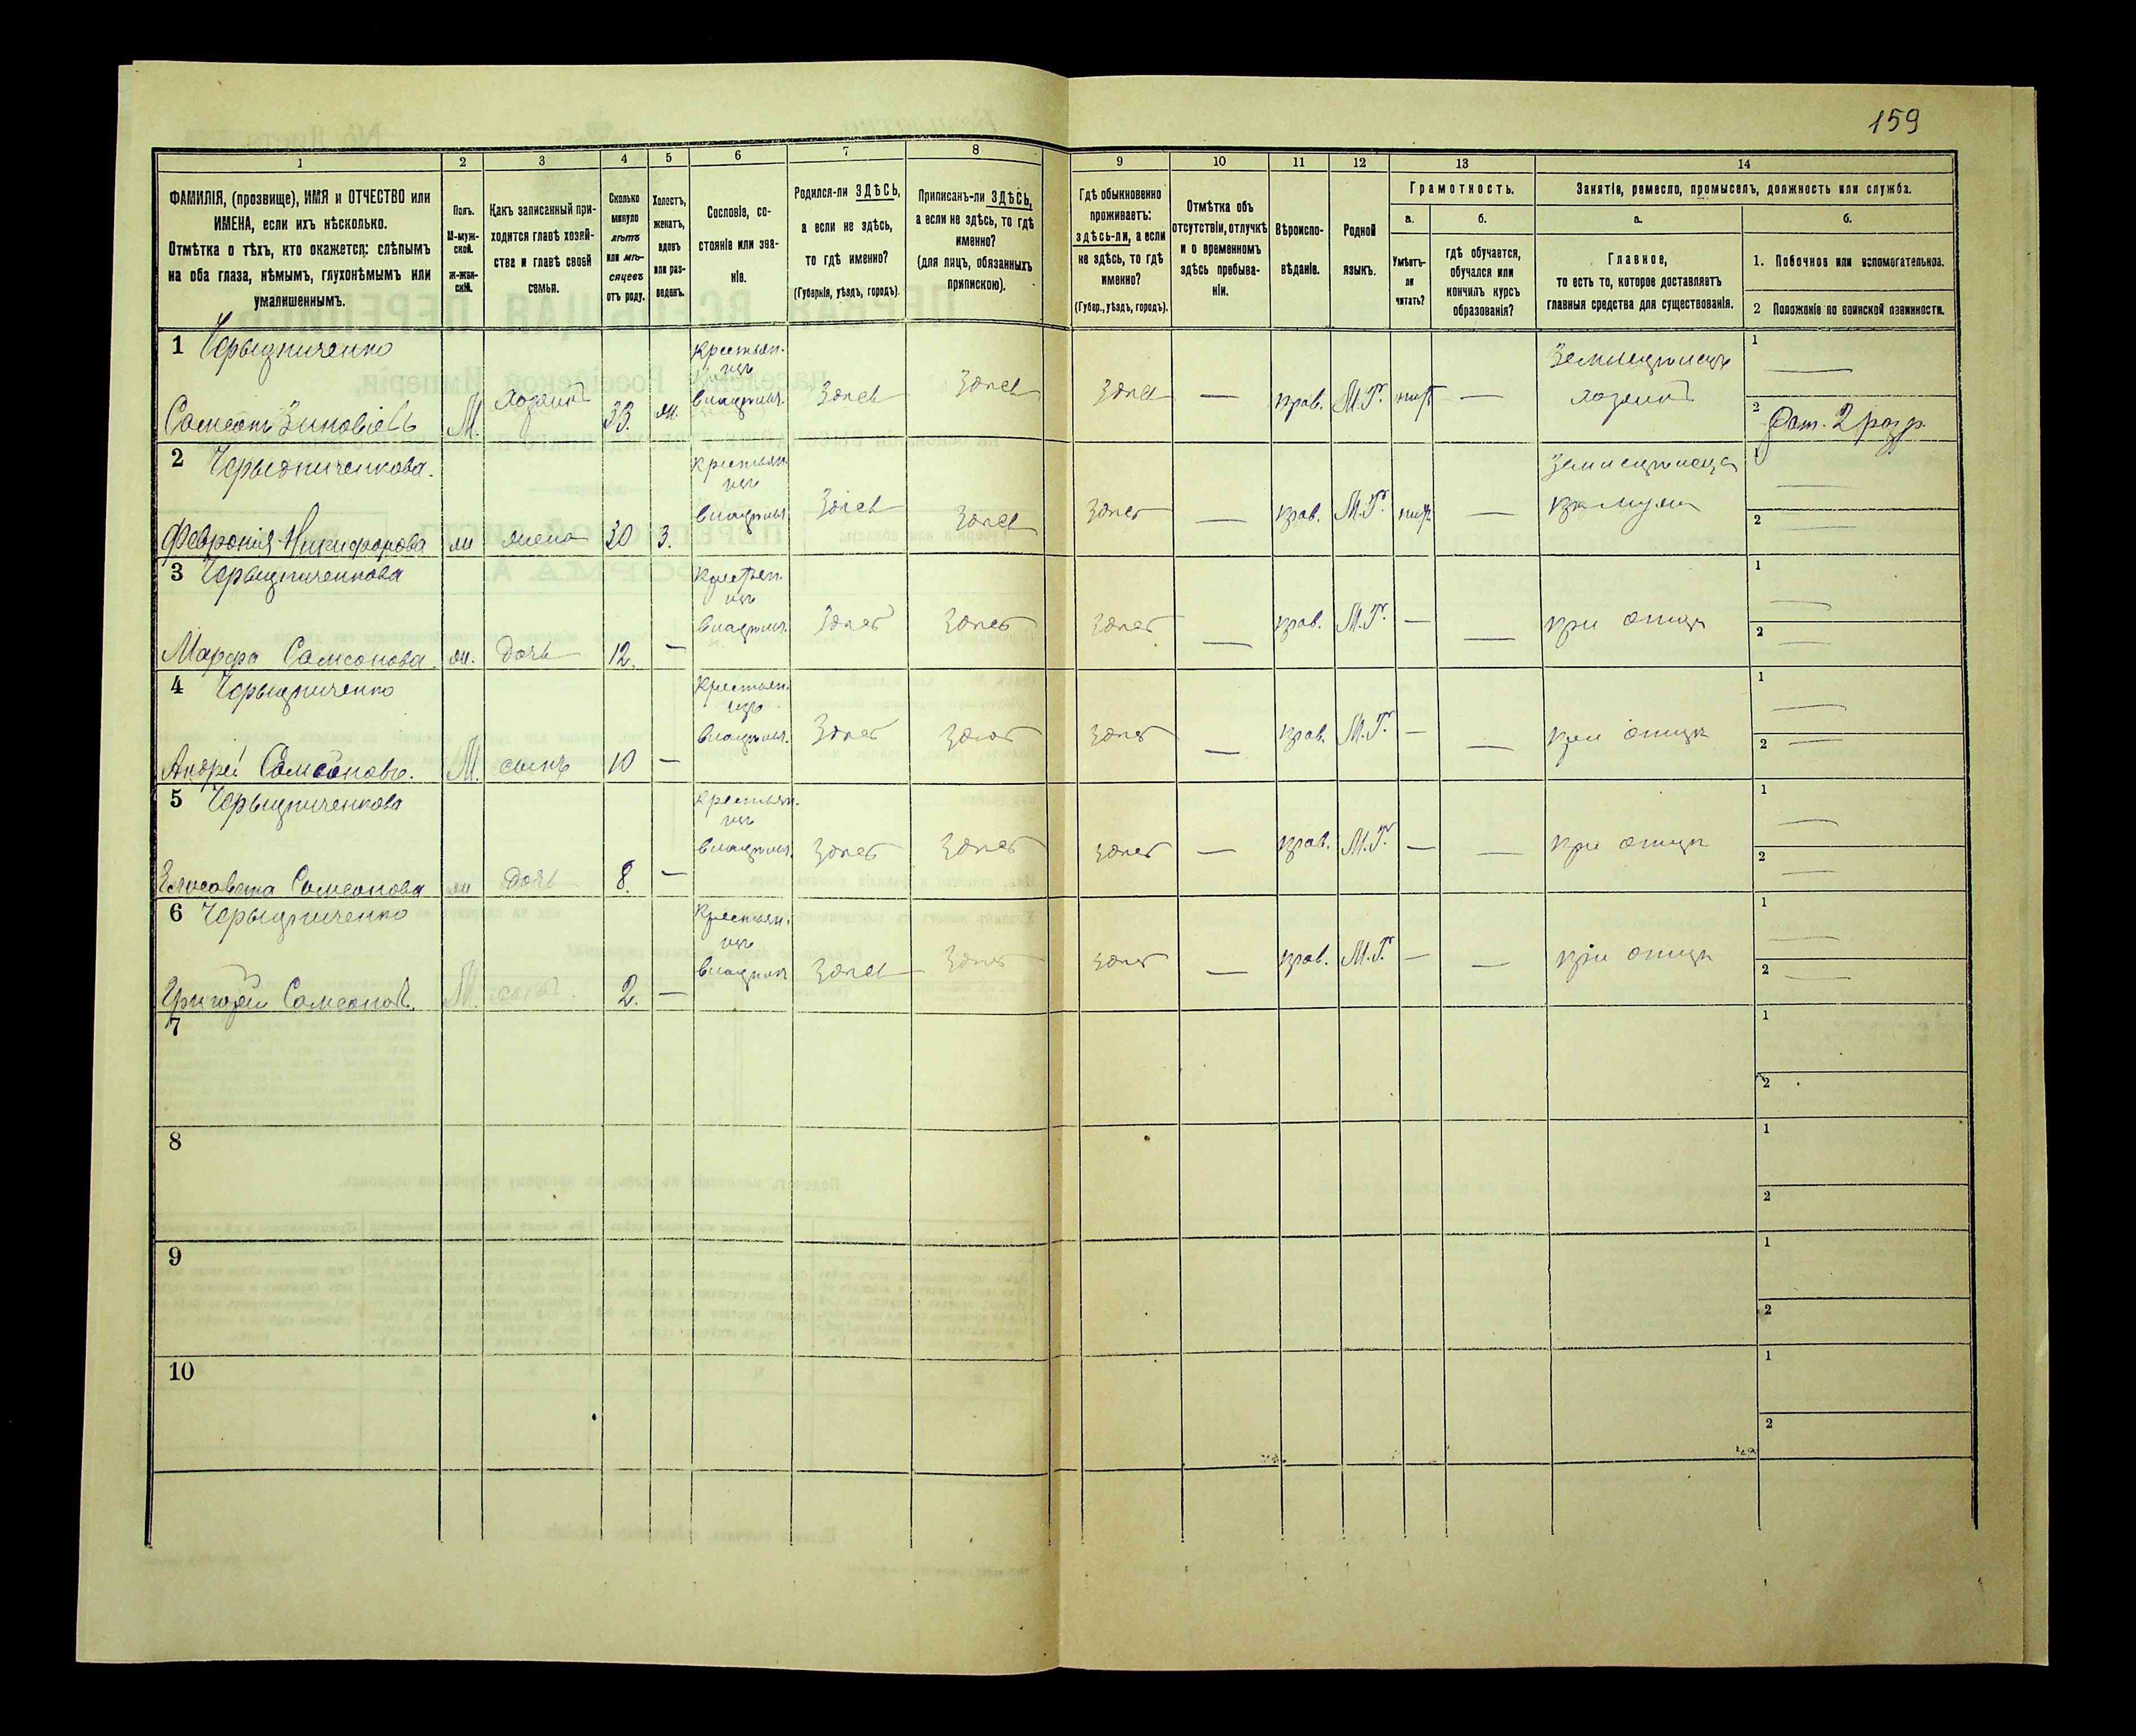 159
1
2
3
4
5
6
7
8
9
10
11
12
13
14
ФАМИЛІЯ, (прозвище), ИМЯ и ОТЧЕСТВО или
ИМЕНА, если ихъ нѣсколько.
Отмѣтка о тѣхъ, кто окажется: слѣпымъ
на оба глаза, нѣмымъ, глухонѣмымъ или
умалишеннымъ.
Полъ.
М-муж-
ской.
ж-жен-
скій.
Какъ записанный при-
ходится главѣ хозяй-
ства и главѣ своей
семьи.
Сколько
минуло
лѣтъ
или мѣ-
сяцевъ
отъ роду.
Холостъ,
женатъ,
вдовъ
или раз-
веденъ.
Сословіе, со-
стояніе или зва-
ніе.
Родился-ли ЗДѢСЬ,
а если не здѣсь,
то гдѣ именно?
(Губернія, уѣздъ, городъ).
Приписанъ-ли ЗДѢСЬ,
а если не здѣсь, то гдѣ
именно?
(для лицъ, обязанныхъ
припискою).
Гдѣ обыкновенно
проживаетъ:
здѣсь-ли, а если
не здѣсь, то гдѣ
именно?
(Губер., уѣздъ, городъ).
Отмѣтка объ
отсутствіи, отлучкѣ
и о временномъ
здѣсь пребыва-
ніи.
Вѣроиспо-
вѣданіе.
Родной
языкъ.
Грамотность.
а.
б.
Умѣетъ-
ли
читать?
гдѣ обучается,
обучался или
кончилъ курсъ
образованія?
Занятіе, ремесло, промыселъ, должность или служба.
а.
б.
Главное,
то есть то, которое доставляетъ
главныя средства для существованія.
1. Побочное или вспомогательное.
2 Положеніе по воинской повинности.
1 Чорыдниченко
Самсонъ Зиновіевъ
М.
хозяинъ
33.
ж.
Крестьян.
изъ
владѣльч.
Здѣсь
Здѣсь
Здѣсь
—
прав.
М.Р.
нѣтъ
—
Земледѣлецъ
хозяинъ
1 —
2 Рат. 2 разр.
2 Чорыдниченкова.
Февронія Никифорова
ж
жена
30
З.
Крестьян.
изъ
владѣльч.
Здѣсь
Здѣсь
Здѣсь
—
прав.
М.Р.
нѣтъ
—
Земледѣлица
при мужѣ
1 —
2 —
3 Чорыдниченкова
Марфа Самсонова.
ж.
дочь
12.
—
Крестьян.
изъ
владѣльч.
Здѣсь
Здѣсь
Здѣсь
—
прав.
М.Р.
—
—
при отцѣ
1 —
2 —
4 Чорыдниченко
Андрей Самсоновъ.
М.
сынъ
10
—
Крестьян.
изъ
владѣльч.
Здѣсь
Здѣсь
Здѣсь
—
прав.
М.Р.
—
—
при отцѣ
1 —
2 —
5 Чорыдниченкова
Елисавета Самсонова
ж
дочь
8.
—
Крестьян.
изъ
владѣльч.
Здѣсь
Здѣсь
Здѣсь
—
прав.
М.Р.
—
—
при отцѣ
1 —
2 —
6 Чорыдниченко
Григорій Самсоновъ.
М.
сынъ
2.
—
Крестьян.
изъ
владѣльч
Здѣсь
Здѣсь
Здѣсь
—
прав.
М.Р.
—
—
при отцѣ
1 —
2 —
7
1
2
8
1
2
9
1
2
10
1
2